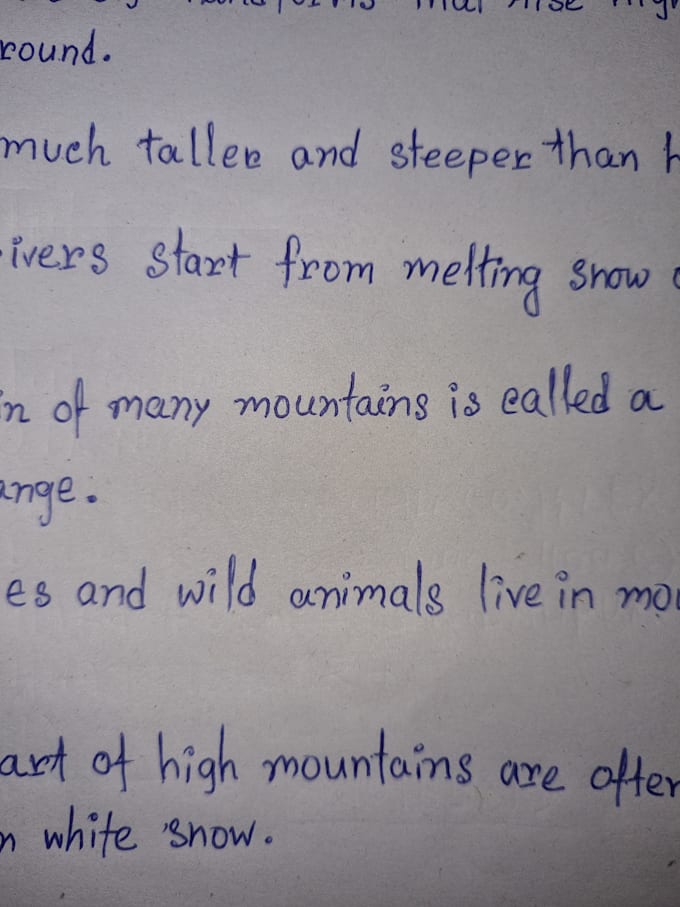 that rise
round.
much taller and steeper than
ivers start from melting snow
in of many mountains is called a
ange.
es and wild animals live in
art of high mountains are often
n white snow.